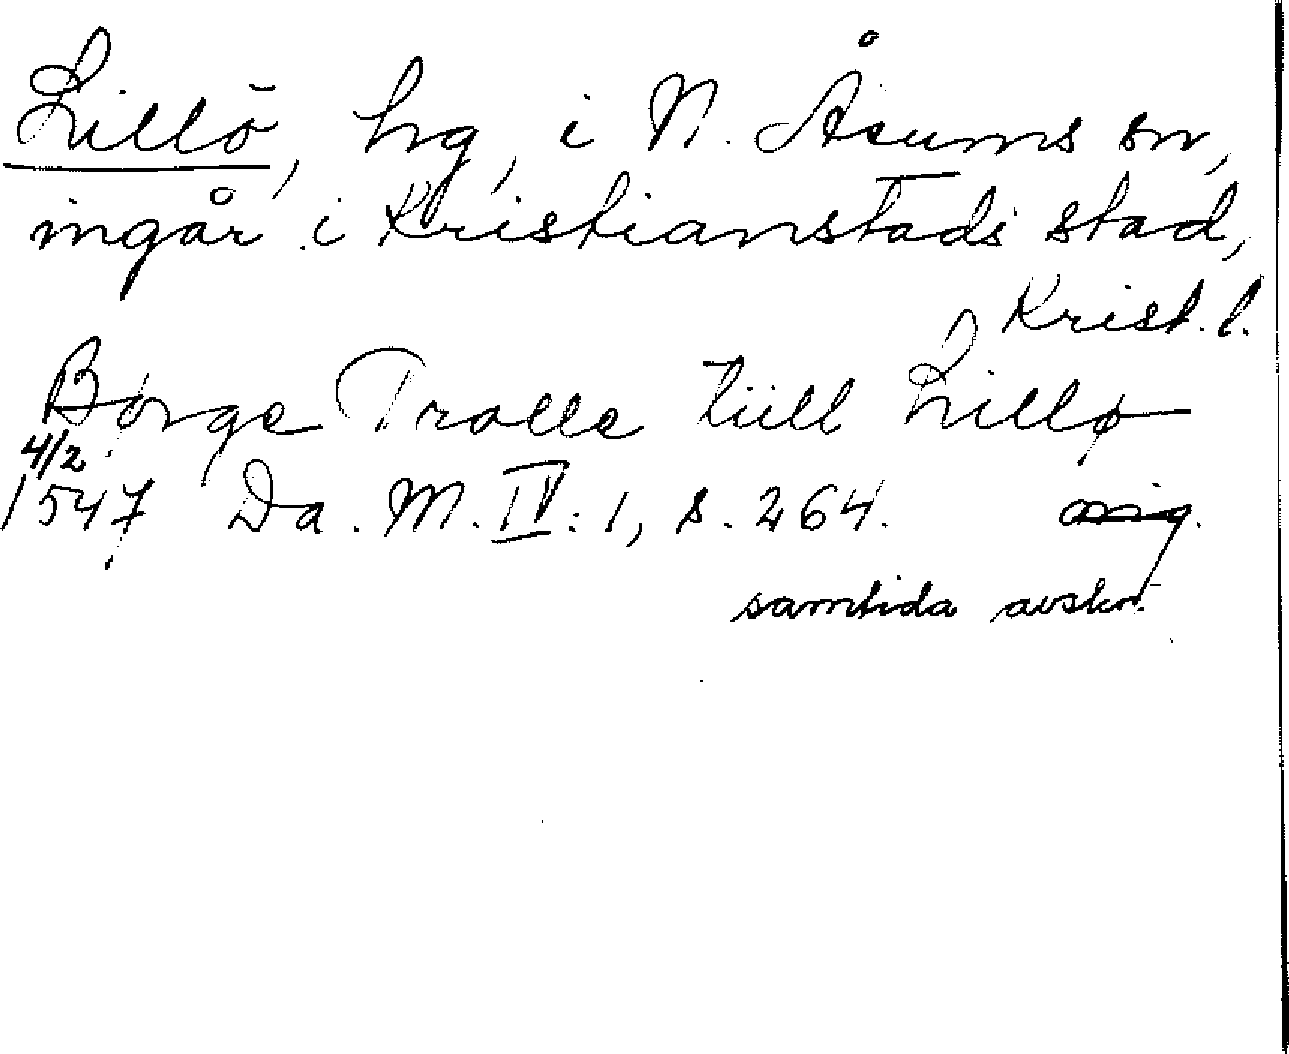 Lillö, hg, i N. Åsums sn,
ingår i Kristianstads stad,
Krist. l.
Børge Trolle tiill Lillø
4/2
1547 Da. M. IV: 1, s. 264. orig.
samtida avskr.